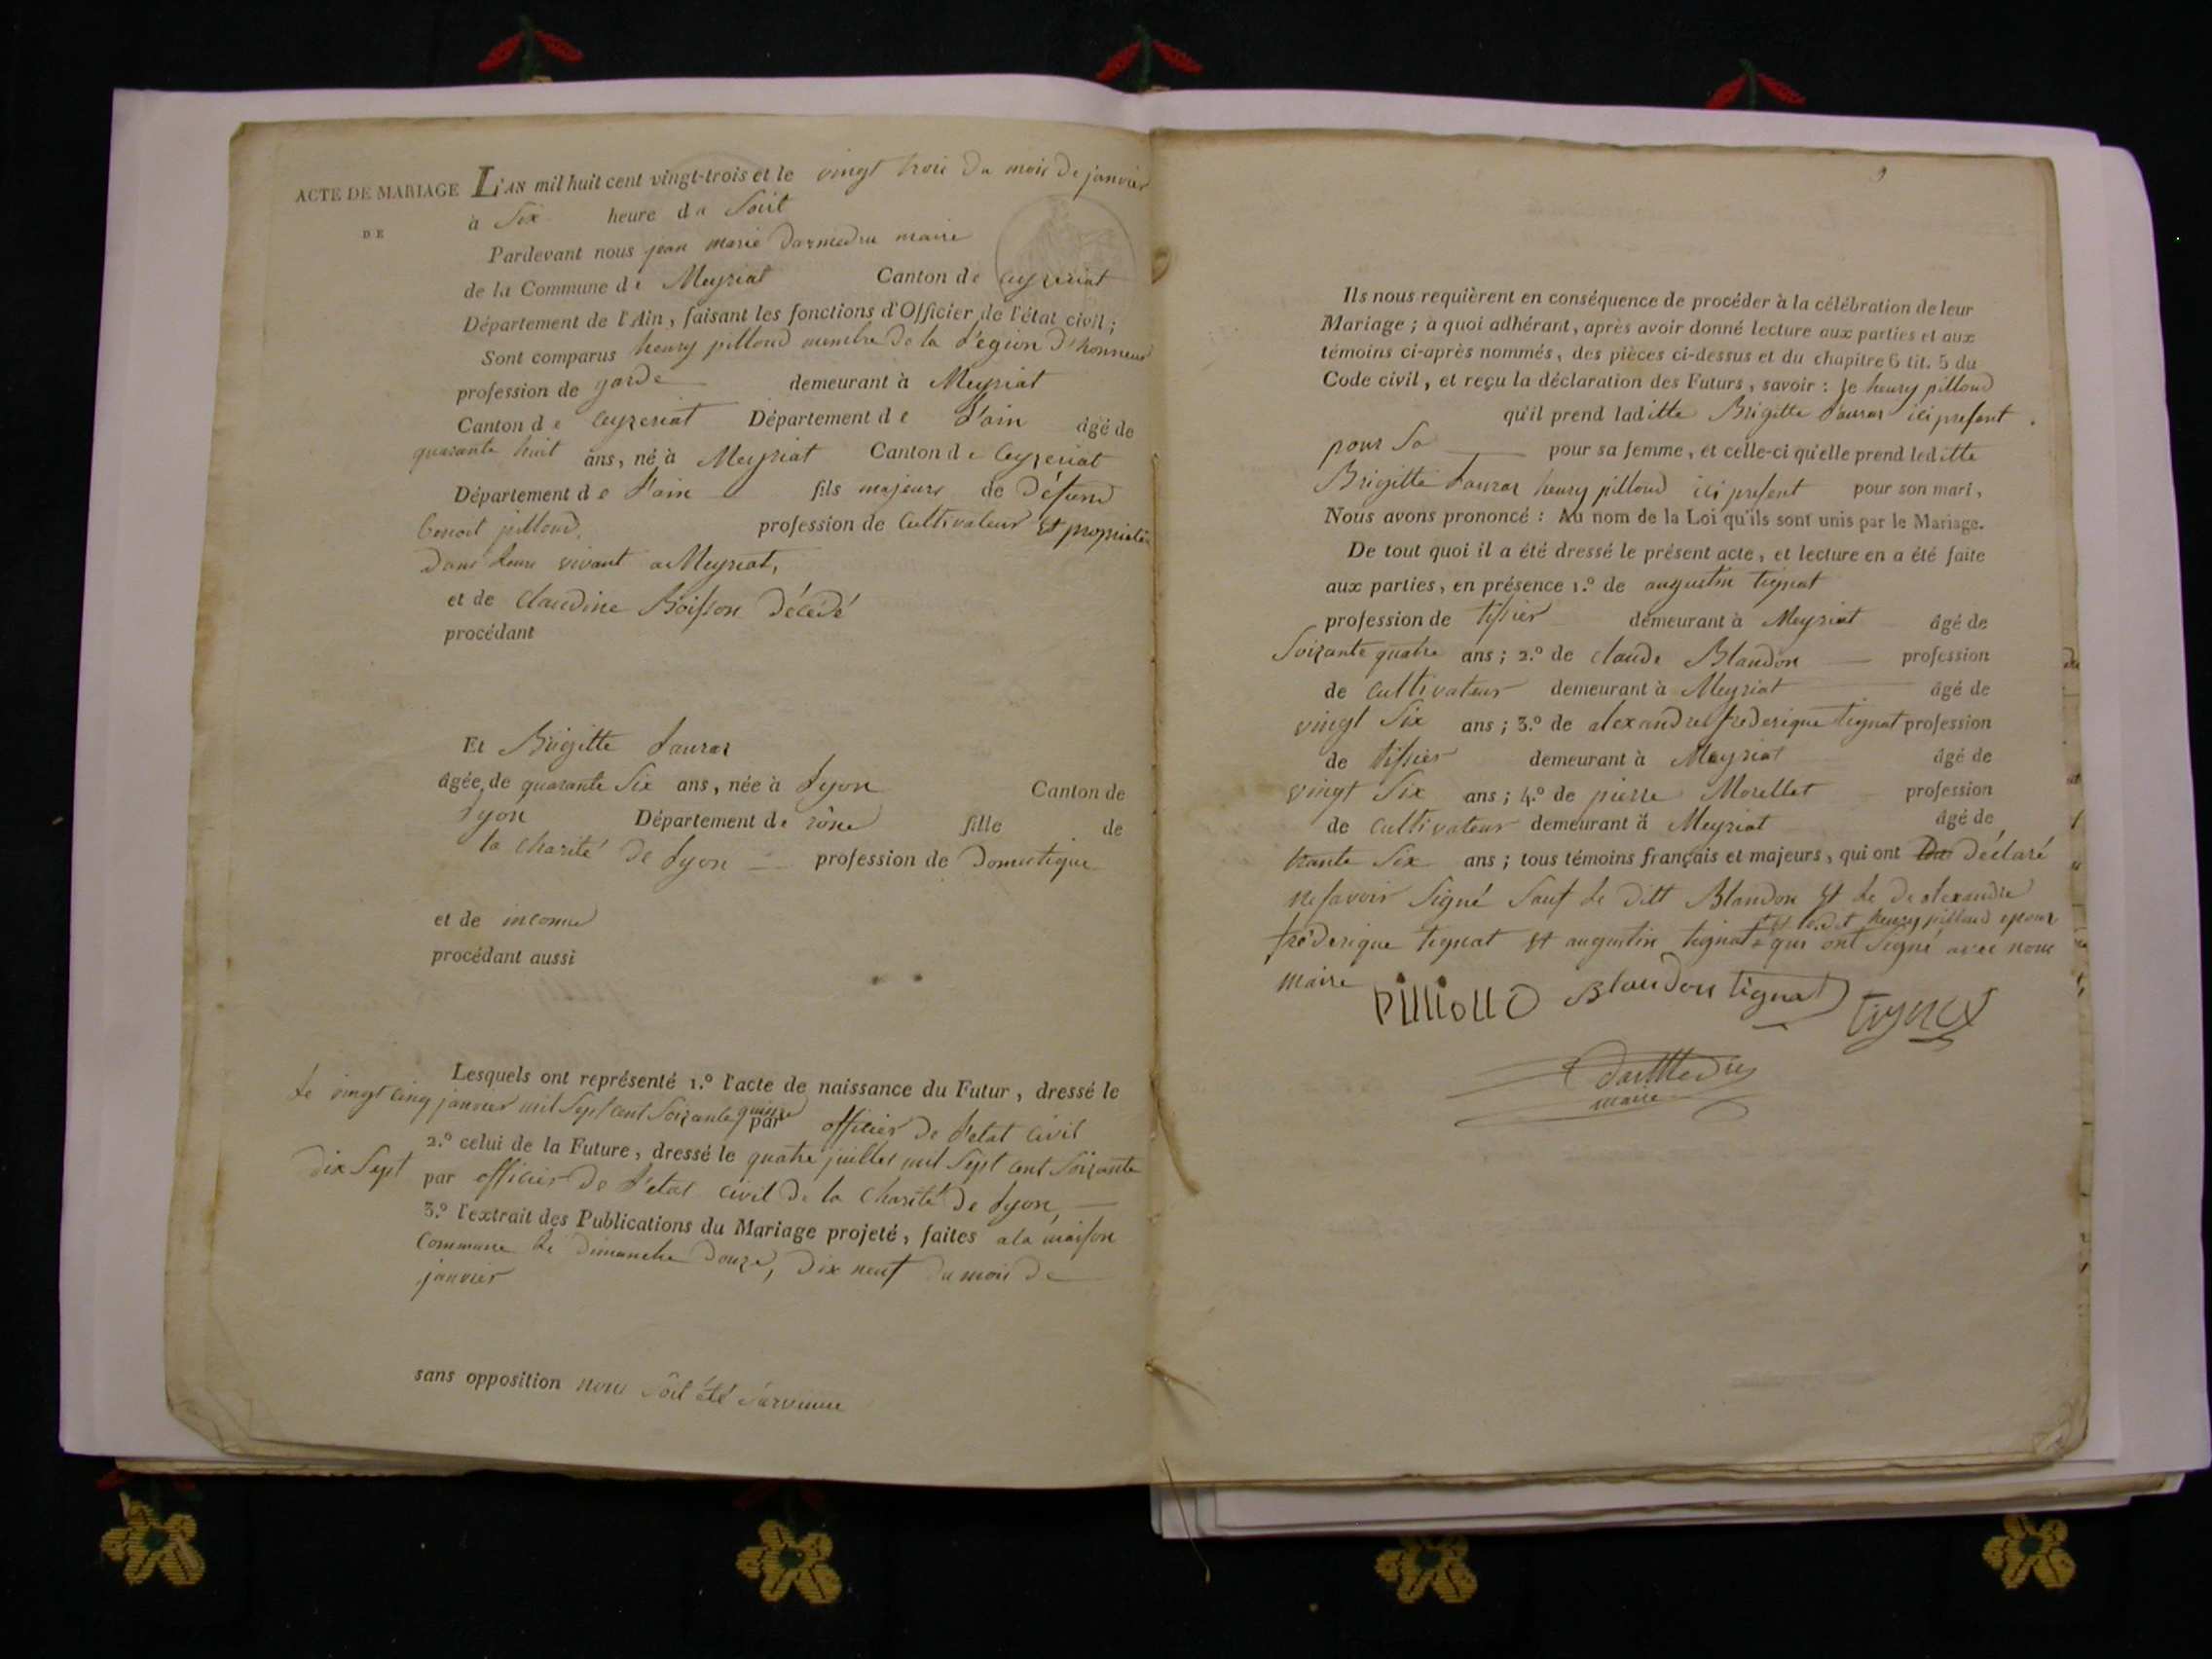 ACTE DE MARIAGE
DE
L'AN mil huit cent vingt-trois et le vingt trois du mois de janvier
à Six heure du Soit
Pardevant nous jean marie darmedru maire
de la Commune de Meyriat Canton de Ceyzeriat
Département de l'Ain, faisant les fonctions d'Officier de l'état civil;
Sont comparus henry pilloud membre de la Légion d'honneur
profession de garde demeurant à Meyriat
Canton de Ceyzeriat Département de L'ain âgé de
quarante huit ans, né à Meyriat Canton de Ceyzeriat
Département de L'ain fils majeurs de Défund
benoit pilloud profession de Cultivateur Et proprietaire
Dans Leurs vivant a Meyriat,
et de Claudine Boisson Décédé
procédant
Et Brigitte Lauras
âgée de quarante Six ans, née à Lyon Canton de
Lyon Département de rône fille de
la Charité de Lyon profession de Domestique
et de inconnu
procédant aussi
Lesquels ont représenté 1.º l'acte de naissance du Futur, dressé le
Le vingt Cinq janvier mil Sept Cent Soixante quinze par officier de L'etat Civil
2.º celui de la Future, dressé le quatre juillet mil Sept Cent Soixante
dix Sept par officier de L'etat civil de la Charité de Lyon,
3.º l'extrait des Publications du Mariage projeté, faites a la maison
Commune Le Dimanche Douze, Dix neuf du mois de
janvier
sans opposition nous Soit été Survenue
Ils nous requièrent en conséquence de procéder à la célébration de leur
Mariage; à quoi adhérant, après avoir donné lecture aux parties et aux
témoins ci-après nommés, des pièces ci-dessus et du chapitre 6 tit. 5 du
Code civil, et reçu la déclaration des Futurs, savoir: Je henry pilloud
qu'il prend laditte Brigitte Lauras ici present
pour Sa pour sa femme, et celle-ci qu'elle prend leditte
Brigitte Lauras henry pilloud ici present pour son mari,
Nous avons prononcé: Au nom de la Loi qu'ils sont unis par le Mariage.
De tout quoi il a été dressé le présent acte, et lecture en a été faite
aux parties, en présence 1.º de augustin tignat
profession de tissier demeurant à Meyriat âgé de
Soixante quatre ans; 2.º de claude Blandon profession
de Cultivateur demeurant à Meyriat âgé de
vingt Six ans; 3.º de alexandre frederique tignat profession
de tissier demeurant à Meyriat âgé de
vingt Six ans; 4.º de pierre Morellet profession
de Cultivateur demeurant à Meyriat âgé de
trante Six ans; tous témoins français et majeurs, qui ont Déclaré
ne savoir Signé Sauf Le ditt Blandon Et Le de alexandre
Et Ledit henry pilloud epoux
frederique tignat Et augustin tignat qui ont Signé avec nous
maire
pilliouD Blandon tignat tignat
darmedru
maire